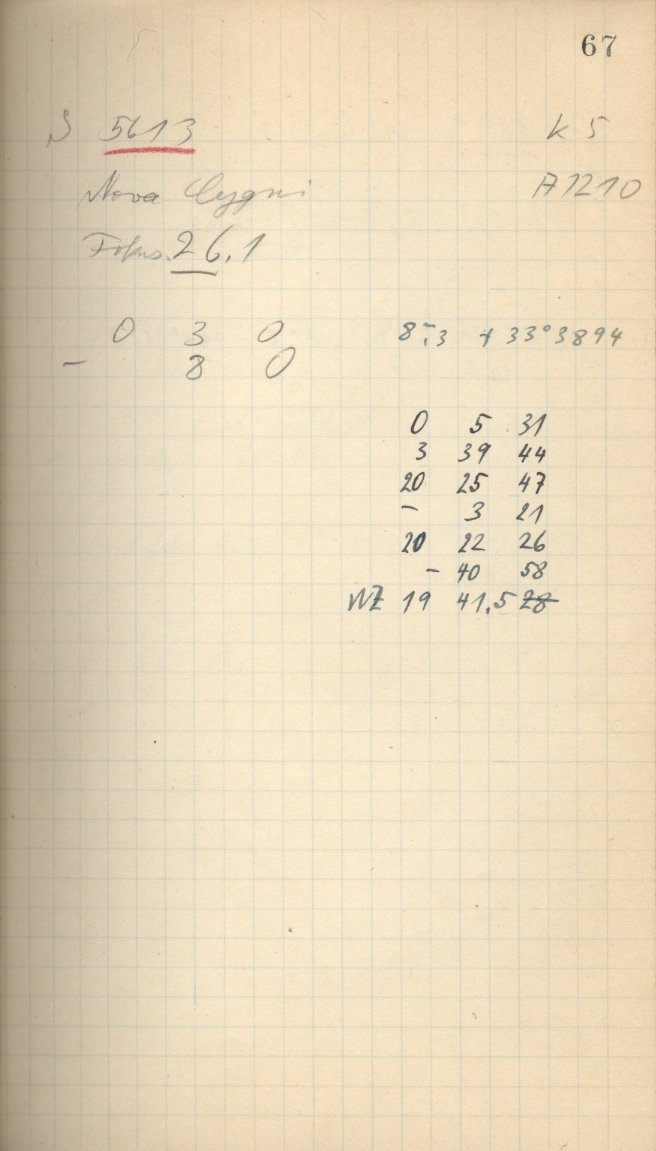 67
S 5613
K 5
Nova Cygni
A 1210
Fokus. 26.1
0 3 0
8m.3 +33°3894
- 8 0
0 5 31
3 39 44
20 25 47
- 3 21
20 22 26
- 40 58
WZ 19 41.5 28